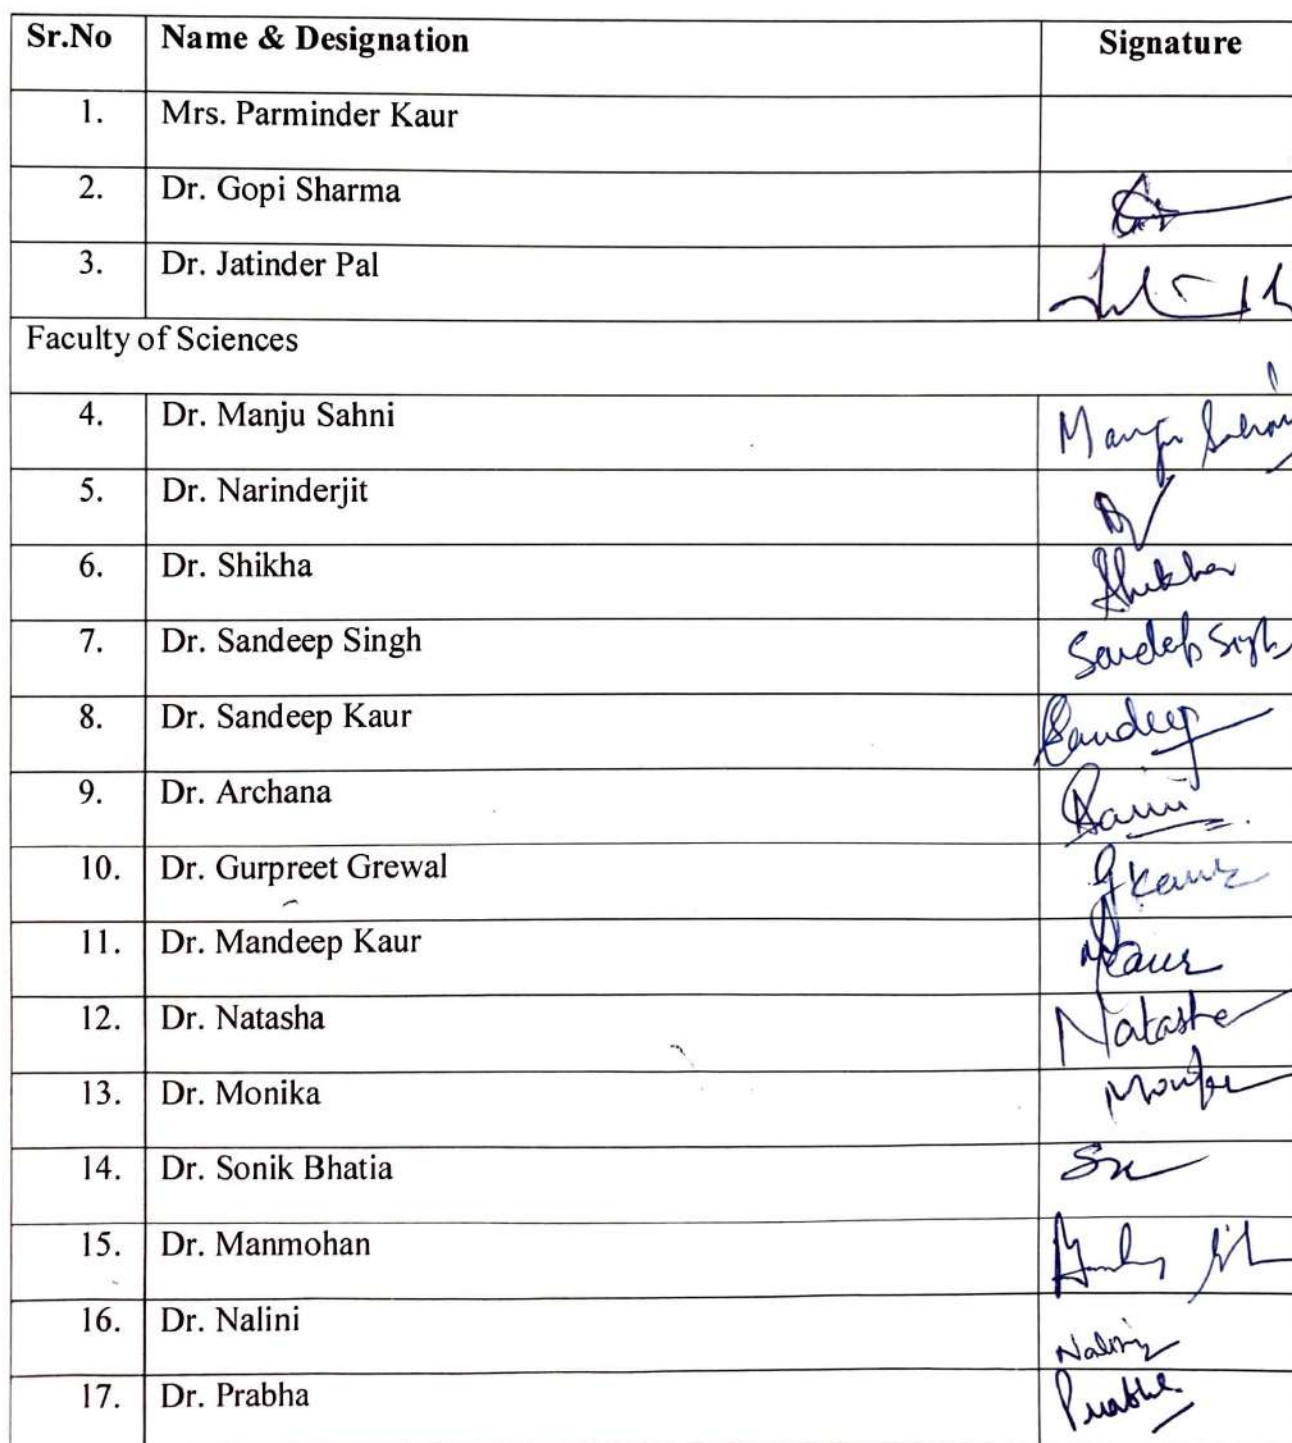 Sr.No Name & Designation Signature
1. Mrs. Parminder Kaur
2. Dr. Gopi Sharma
3. Dr. Jatinder Pal
Faculty of Sciences
4. Dr. Manju Sahni Manju Sahni
5. Dr. Narinderjit
6. Dr. Shikha Shikha
7. Dr. Sandeep Singh Sandeep Singh
8. Dr. Sandeep Kaur Sandeep
9. Dr. Archana
10. Dr. Gurpreet Grewal gkaur
11. Dr. Mandeep Kaur MKaur
12. Dr. Natasha Natasha
13. Dr. Monika Monika
14. Dr. Sonik Bhatia
15. Dr. Manmohan
16. Dr. Nalini Nalini
17. Dr. Prabha Prabha